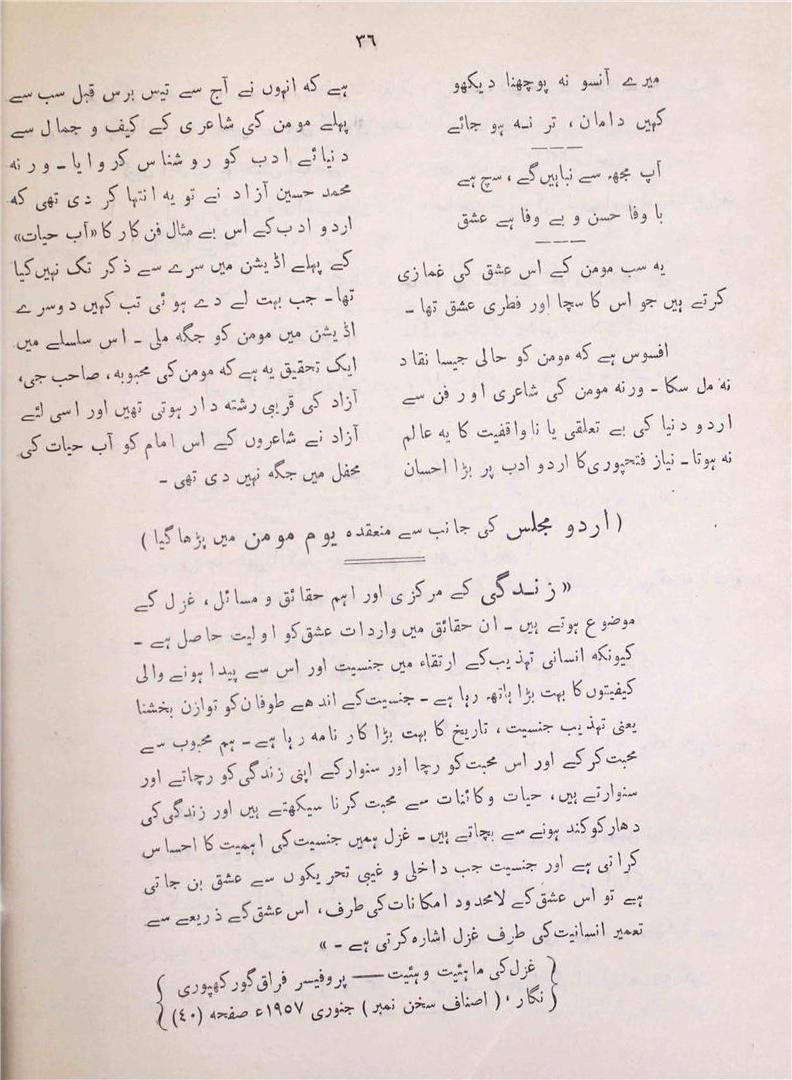 ۳٦
میرے آنسو نہ پوچھنا دیکھو
کہیں دامان، تر نہ ہو جائے
آپ مجھ سے نباہیں گے، سچ ہے
با وفا حسن و بے وفا ہے عشق
یہ سب مومن کے اس عشق کی غمازی
کرتے ہیں جو اس کا سچا اور فطری عشق تھا ـ
افسوس ہے کہ مومن کو حالی جیسا نقاد
نہ مل سکا ـ ورنہ مومن کی شاعری اور فن سے
اردو دنیا کی بے تعلقی یا ناواقفیت کا یہ عالم
نہ ہوتا ـ نیاز فتحپوری کا اردو ادب پر بڑا احسان
ہے کہ انہوں نے آج سے تیس برس قبل سب سے
پہلے مومن کی شاعری کے کیف و جمال سے
دنیائے ادب کو روشناس کروایا ـ ورنہ
محمد حسین آزاد نے تو یہ انتہا کر دی تھی کہ
اردو ادب کے اس بے مثال فن کار کا «آب حیات»
کے پہلے اڈیشن میں سرے سے ذکر تک نہیں کیا
تھا ـ جب بہت لے دے ہوئی تب کہیں دوسرے
اڈیشن میں مومن کو جگہ ملی ـ اس سلسلے میں
ایک تحقیق یہ ہے کہ مومن کی محبوبہ، صاحب جی،
آزاد کی قریبی رشتہ دار ہوتی تھیں اور اسی لئے
آزاد نے شاعروں کے اس امام کو آب حیات کی
محفل میں جگہ نہیں دی تھی ـ
( اردو مجلس کی جانب سے منعقدہ یوم مومن میں پڑھا گیا )
« زندگی کے مرکزی اور اہم حقائق و مسائل، غزل کے
موضوع ہوتے ہیں ـ ان حقائق میں واردات عشق کو اولیت حاصل ہے ـ
کیونکہ انسانی تہذیب کے ارتقاء میں جنسیت اور اس سے پیدا ہونے والی
کیفیتوں کا بہت بڑا ہاتھ رہا ہے ـ جنسیت کے اندھے طوفان کو توازن بخشنا
یعنی تہذیب جنسیت، تاریخ کا بہت بڑا کارنامہ رہا ہے ـ ہم محبوب سے
محبت کرکے اور اس محبت کو رچا اور سنوار کے اپنی زندگی کو رچاتے اور
سنوارتے ہیں، حیات و کائنات سے محبت کرنا سیکھتے ہیں اور زندگی کی
دھار کو کند ہونے سے بچاتے ہیں ـ غزل ہمیں جنسیت کی اہمیت کا احساس
کراتی ہے اور جنسیت جب داخلی و غیبی تحریکوں سے عشق بن جاتی
ہے تو اس عشق کے لامحدود امکانات کی طرف، اس عشق کے ذریعے سے
تعمیر انسانیت کی طرف غزل اشارہ کرتی ہے ـ »
{ غزل کی ماہئیت و ہئیت — پروفیسر فراق گورکھپوری }
{ نگار، ( اصناف سخن نمبر ) جنوری ۱۹۵۷ء صفحہ (٤٠) }